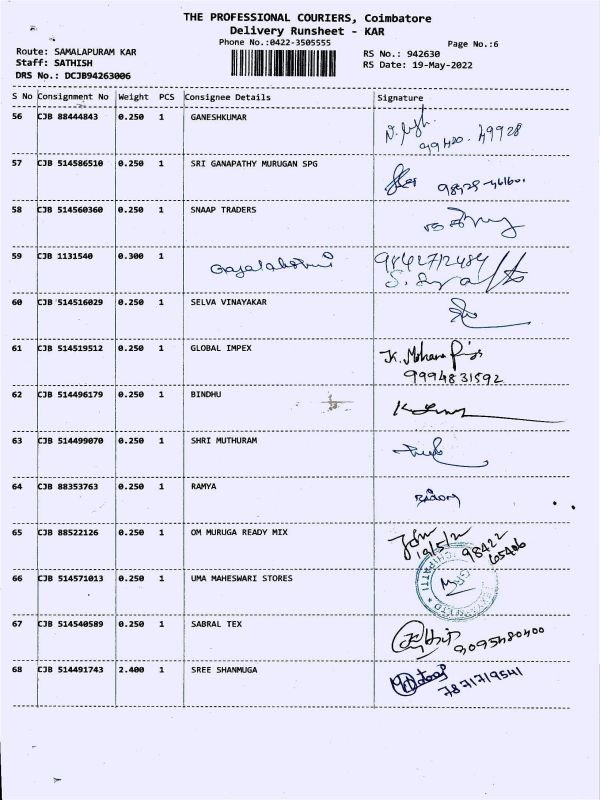 THE PROFESSIONAL COURIERS, Coimbatore
Delivery Runsheet - KAR
Phone No.:0422-3505555
Page No.:6
Route: SAMALAPURAM KAR
RS No.: 942630
Staff: SATHISH
RS Date: 19-May-2022
DRS No.: DCJB94263006
S No Consignment No Weight PCS Consignee Details Signature
56 CJB 88444843 0.250 1 GANESHKUMAR
57 CJB 514586510 0.250 1 SRI GANAPATHY MURUGAN SPG
58 CJB 514560360 0.250 1 SNAAP TRADERS
59 CJB 1131540 0.300 1 9842712484
60 CJB 514516029 0.250 1 SELVA VINAYAKAR
61 CJB 514519512 0.250 1 GLOBAL IMPEX K. Mohana
9994831592
62 CJB 514496179 0.250 1 BINDHU
63 CJB 514499070 0.250 1 SHRI MUTHURAM
64 CJB 88353763 0.250 1 RAMYA
65 CJB 88522126 0.250 1 OM MURUGA READY MIX
19/5/22 98422
65406
66 CJB 514571013 0.250 1 UMA MAHESWARI STORES
67 CJB 514540589 0.250 1 SABRAL TEX
9095480400
68 CJB 514491743 2.400 1 SREE SHANMUGA
7871719541